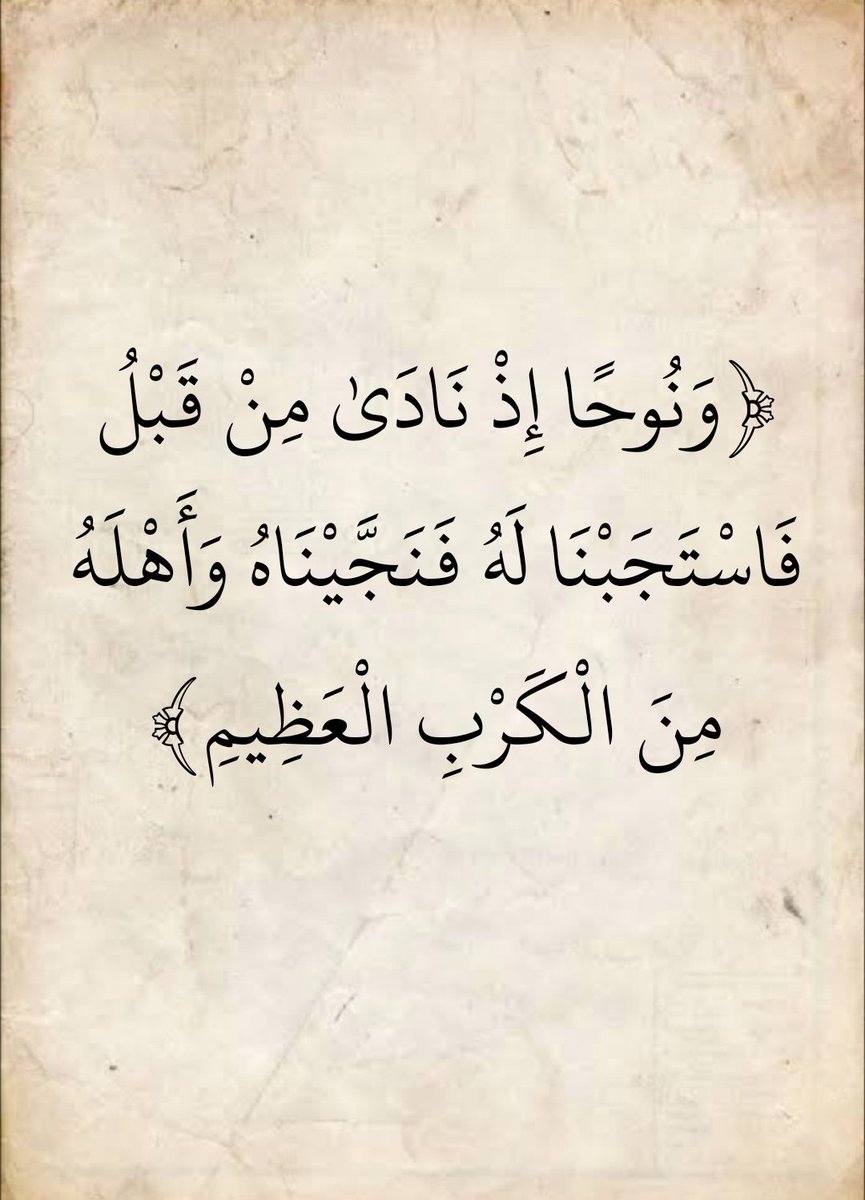 ﴿وَنُوحًا إِذْ نَادَىٰ مِنْ قَبْلُ
فَاسْتَجَبْنَا لَهُ فَنَجَّيْنَاهُ وَأَهْلَهُ
مِنَ الْكَرْبِ الْعَظِيمِ﴾